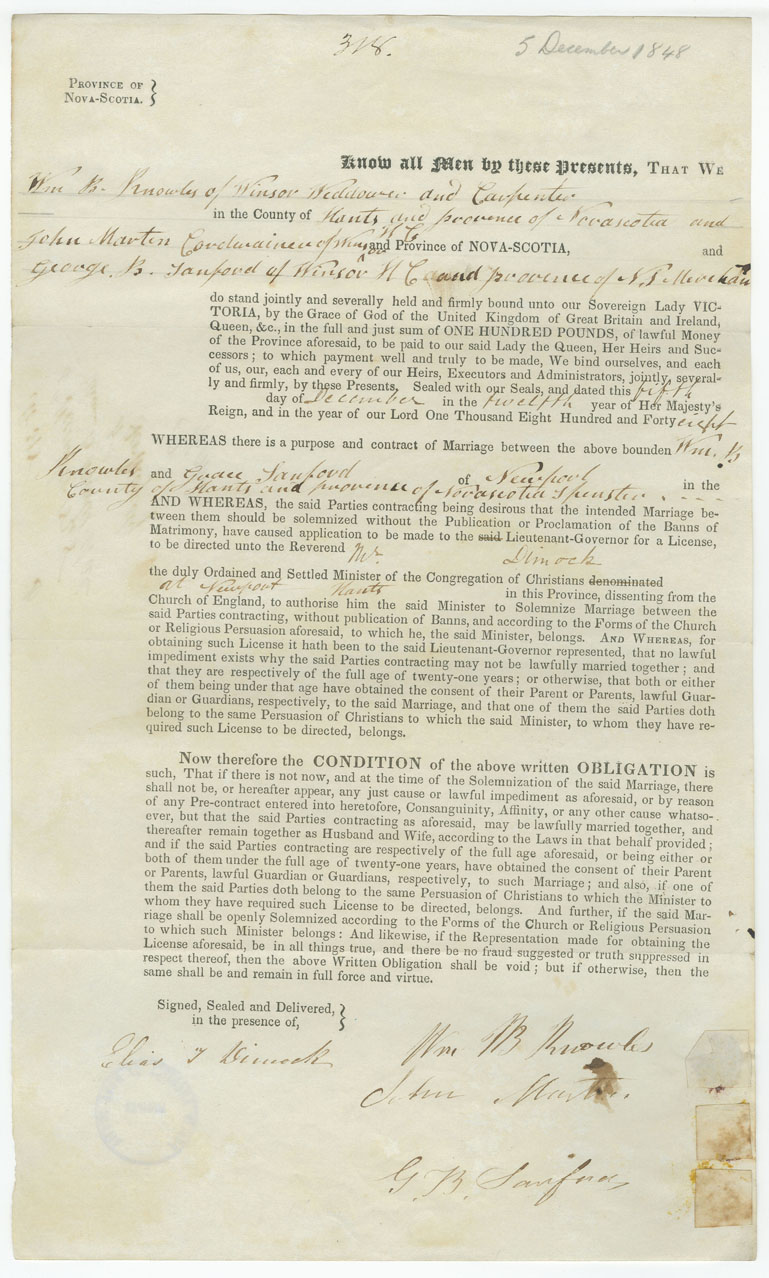 318.
5 December 1848
PROVINCE OF
NOVA-SCOTIA. }
Know all Men by these Presents, THAT WE
Wm B. Knowles of Winsor Weddower and Carpenter
in the County of Hants and provence of Novascotia and
John Martin Cordwainer of Winsor H Co and Province of NOVA-SCOTIA, and
George B. Sanford of Winsor H C and provence of N S Merchant
do stand jointly and severally held and firmly bound unto our Sovereign Lady VIC-
TORIA, by the Grace of God of the United Kingdom of Great Britain and Ireland,
Queen, &c., in the full and just sum of ONE HUNDRED POUNDS, of lawful Money
of the Province aforesaid, to be paid to our said Lady the Queen, Her Heirs and Suc-
cessors; to which payment well and truly to be made, We bind ourselves, and each
of us, our, each and every of our Heirs, Executors and Administrators, jointly, several-
ly and firmly, by these Presents. Sealed with our Seals, and dated this fifth
day of December in the twelfth year of Her Majesty's
Reign, and in the year of our Lord One Thousand Eight Hundred and Forty eight
WHEREAS there is a purpose and contract of Marriage between the above bounden Wm. B
Knowles and Grace Sanford of Newport in the
County of Hants and provence of Novascotia Spenster
AND WHEREAS, the said Parties contracting being desirous that the intended Marriage be-
tween them should be solemnized without the Publication or Proclamation of the Banns of
Matrimony, have caused application to be made to the said Lieutenant-Governor for a License,
to be directed unto the Reverend Mr. Dimock
the duly Ordained and Settled Minister of the Congregation of Christians denominated
at Newport Hants in this Province, dissenting from the
Church of England, to authorise him the said Minister to Solemnize Marriage between the
said Parties contracting, without publication of Banns, and according to the Forms of the Church
or Religious Persuasion aforesaid, to which he, the said Minister, belongs. AND WHEREAS, for
obtaining such License it hath been to the said Lieutenant-Governor represented, that no lawful
impediment exists why the said Parties contracting may not be lawfully married together; and
that they are respectively of the full age of twenty-one years; or otherwise, that both or either
of them being under that age have obtained the consent of their Parent or Parents, lawful Guar-
dian or Guardians, respectively, to the said Marriage, and that one of them the said Parties doth
belong to the same Persuasion of Christians to which the said Minister, to whom they have re-
quired such License to be directed, belongs.
Now therefore the CONDITION of the above written OBLIGATION is
such, That if there is not now, and at the time of the Solemnization of the said Marriage, there
shall not be, or hereafter appear, any just cause or lawful impediment as aforesaid, or by reason
of any Pre-contract entered into heretofore, Consanguinity, Affinity, or any other cause whatso-
ever, but that the said Parties contracting as aforesaid, may be lawfully married together, and
thereafter remain together as Husband and Wife, according to the Laws in that behalf provided;
and if the said Parties contracting are respectively of the full age aforesaid, or being either or
both of them under the full age of twenty-one years, have obtained the consent of their Parent
or Parents, lawful Guardian or Guardians, respectively, to such Marriage; and also, if one of
them the said Parties doth belong to the same Persuasion of Christians to which the Minister to
whom they have required such License to be directed, belongs. And further, if the said Mar-
riage shall be openly Solemnized according to the Forms of the Church or Religious Persuasion
to which such Minister belongs: And likewise, if the Representation made for obtaining the
License aforesaid, be in all things true, and there be no fraud suggested or truth suppressed in
respect thereof, then the above Written Obligation shall be void; but if otherwise, then the
same shall be and remain in full force and virtue.
Signed, Sealed and Delivered,
in the presence of, }
Elias T Dimock
Wm B Knowles
John Martin
G. B. Sanford